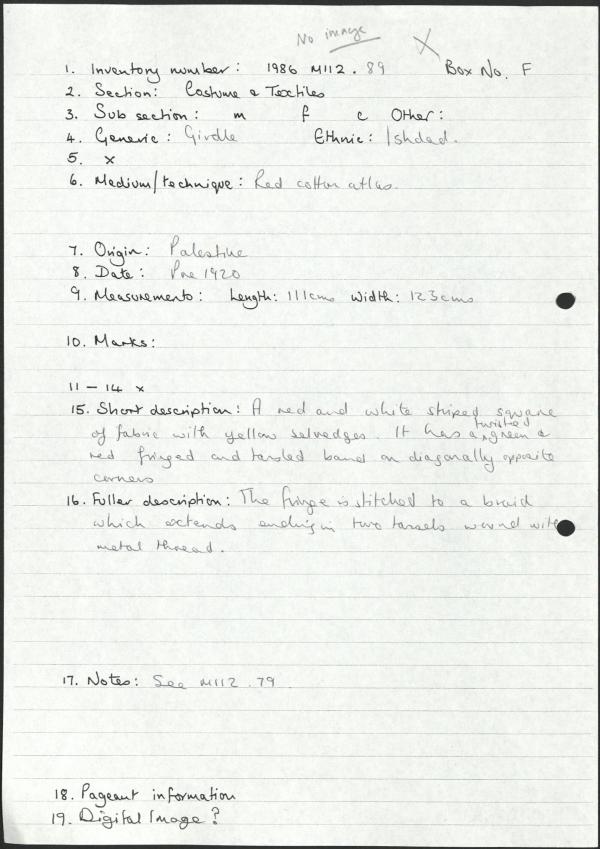 No image X
1. Inventory number: 1986 M112.89 Box No. F
2. Section: Costume & Textiles
3. Sub section: m f c Other:
4. Generic: Girdle Ethnic: Ishdad.
5. x
6. Medium/technique: Red cotton atlas.
7. Origin: Palestine
8. Date: Pre 1920
9. Measurements: Length: 111cms Width: 123cms
10. Marks:
11 - 14 x
15. Short description: A red and white striped square
of fabric with yellow selvedges. It has a twisted green &
red fringed and tassled band on diagonally opposite
corners
16. Fuller description: The fringe is stitched to a braid
which extends ending in two tassels wound with
metal thread.
17. Notes: See M112.79.
18. Pageant information
19. Digital Image?